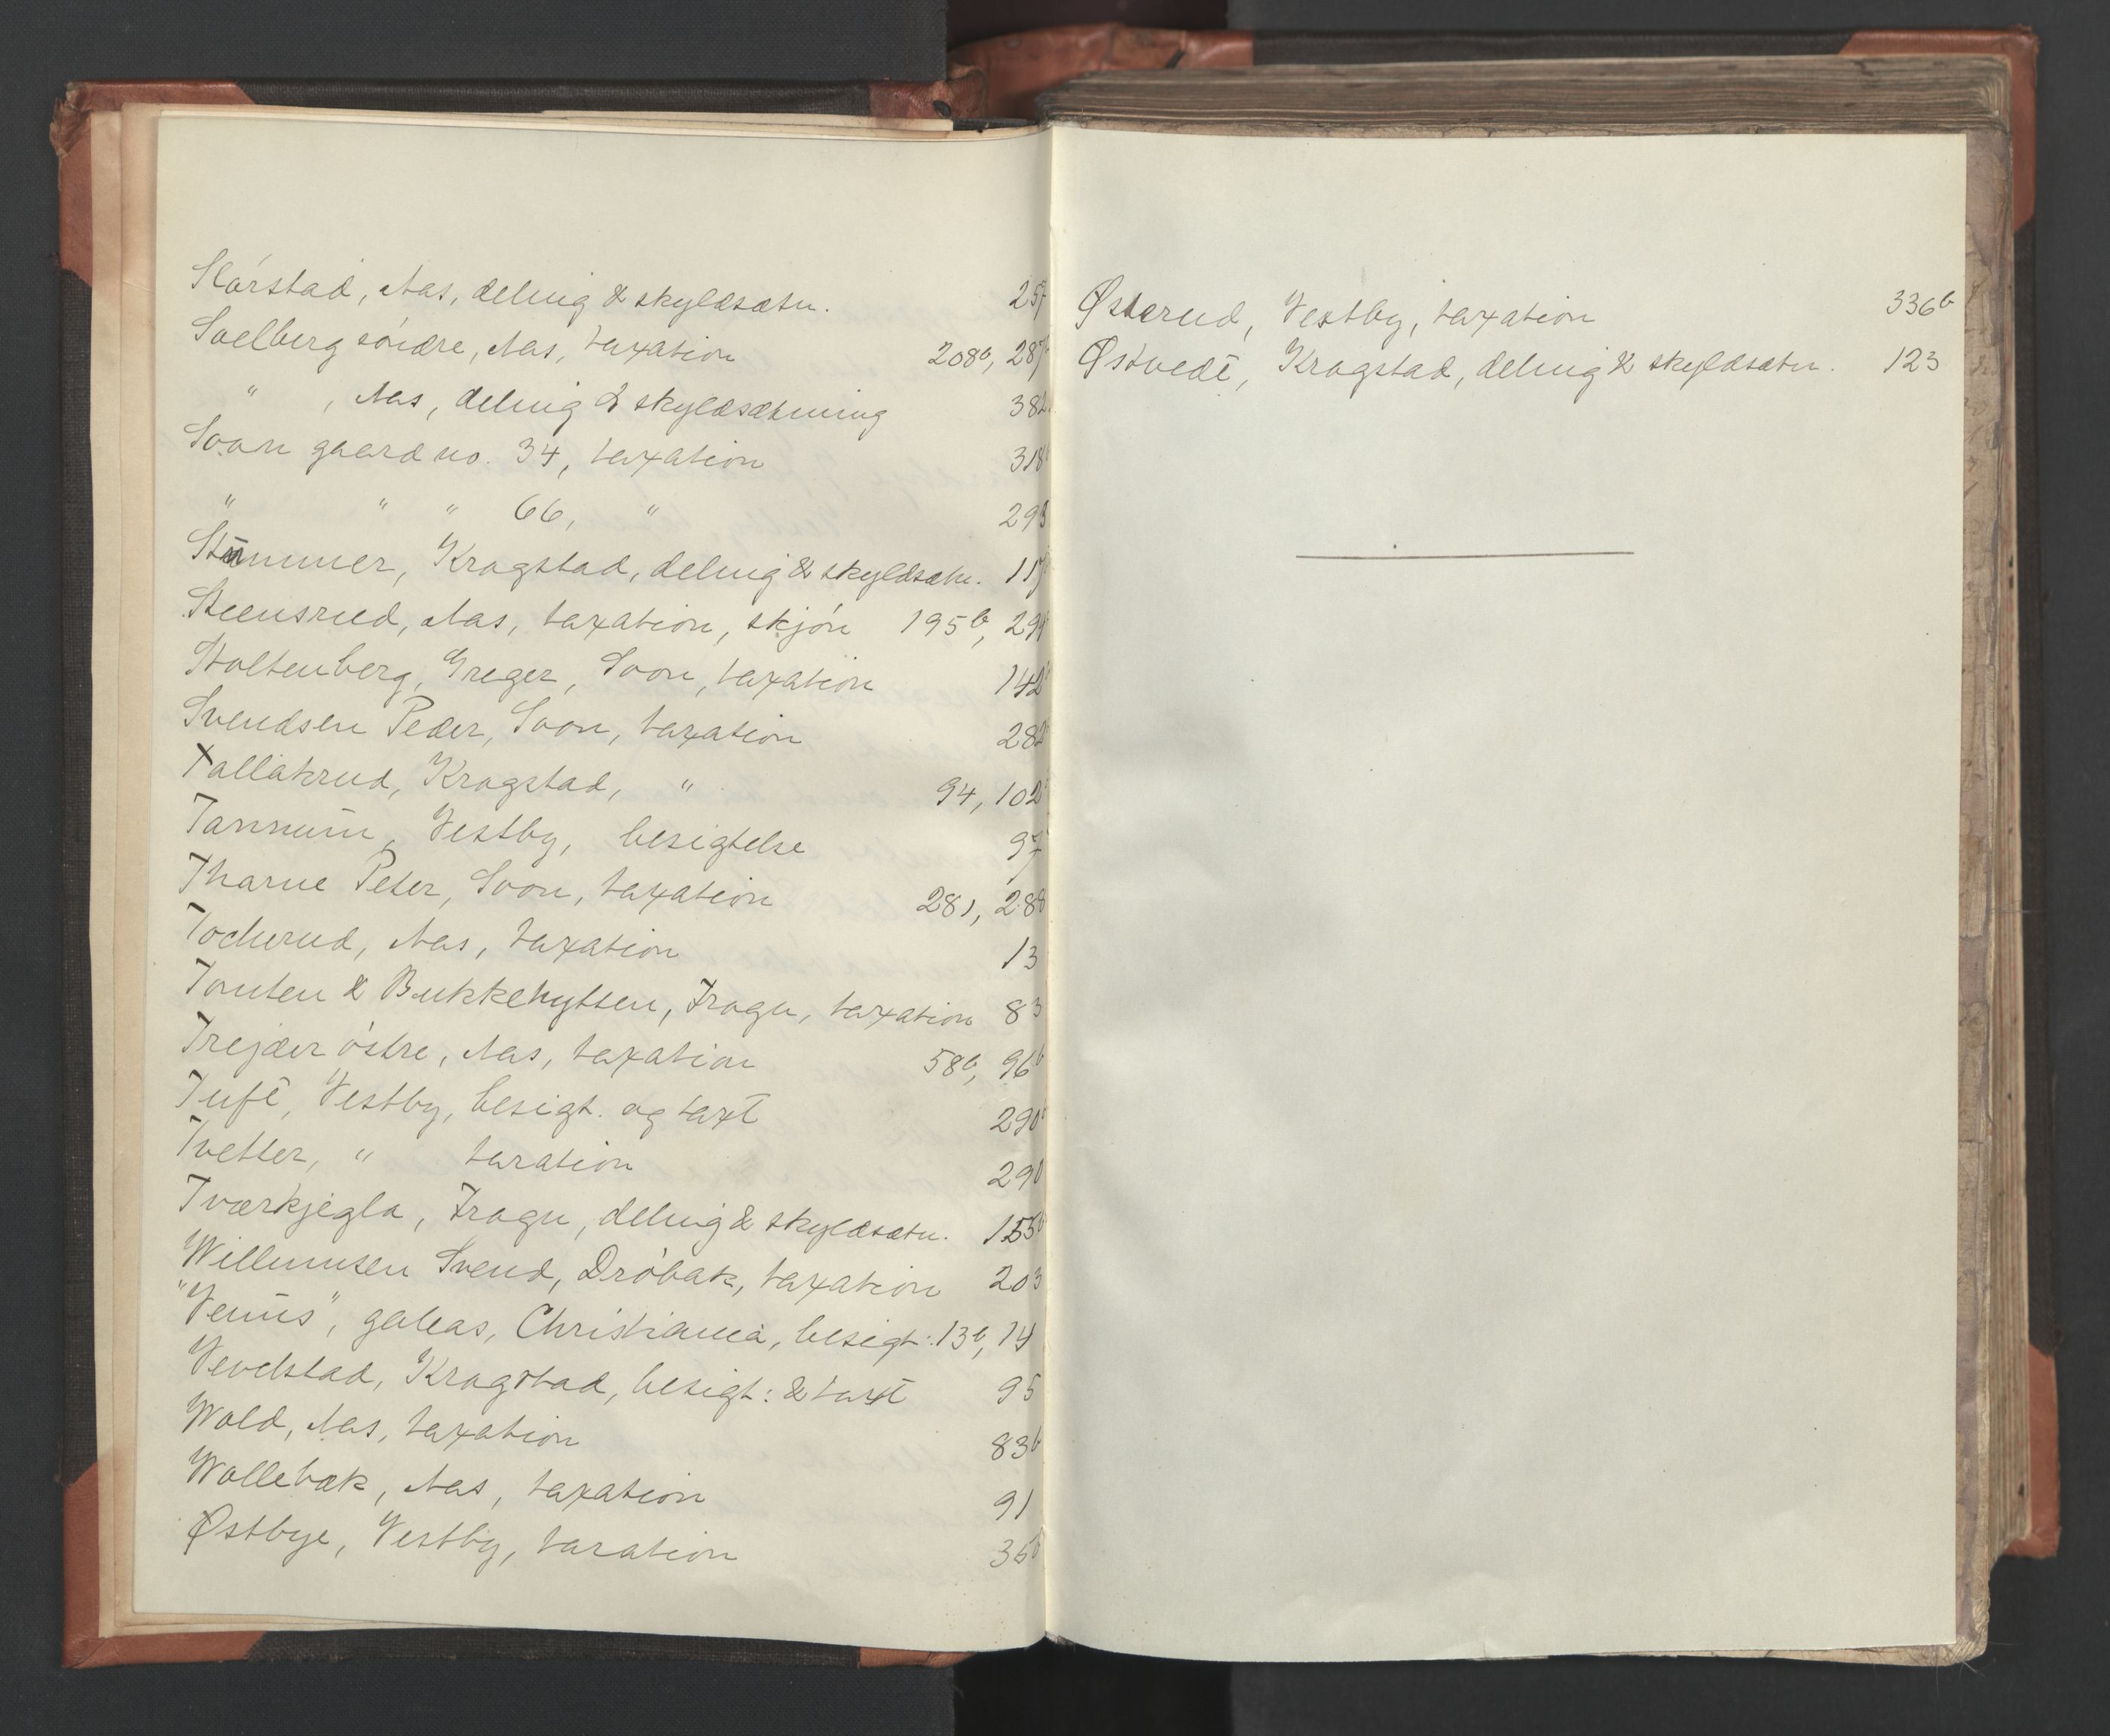 Slörstad, Aas, deling & skyldsætn. 257
Solberg söndre, Aas, taxation 208b, 287
" , Aas, deling & skyldsætning 382
Soon gaard no. 34, taxation 318
" " " 66, " 293
Stummer, Kragstad, deling & skyldsætn. 117
Steensrud, Aas, taxation, skjön 195b, 299
Stoltenberg, Greger, Soon, taxation 142
Svendsen Peder, Soon, taxation 282
Tallakrud, Kragstad, " 94, 102
Tannum, Vestby, besigtelse 97
Tharue Peter, Soon, taxation 281, 288
Tocherud, Aas, taxation 13
Tomten & Bukkehytten, Frogn, taxation 83
Trejder östre, Aas, taxation 58b, 96b
Tuft, Vestby, besigt. og taxt 290
Tvetter, " taxation 290
Tværkjegla, Frogn, deling & skyldsætn. 155b
Willumsen Svend, Dröbak, taxation 203
"Venus", galeas, Christiania, besigt: 13b, 14
Vevelstad, Kragstad, besigt: & taxt 95
Wold, Aas, taxation 83b
Wollebæk, Aas, taxation 91
Østbye, Vestby, taxation 356
Østerud, Vestby, taxation 336b
Østvedt, Kragstad, deling & skyldsætn. 123